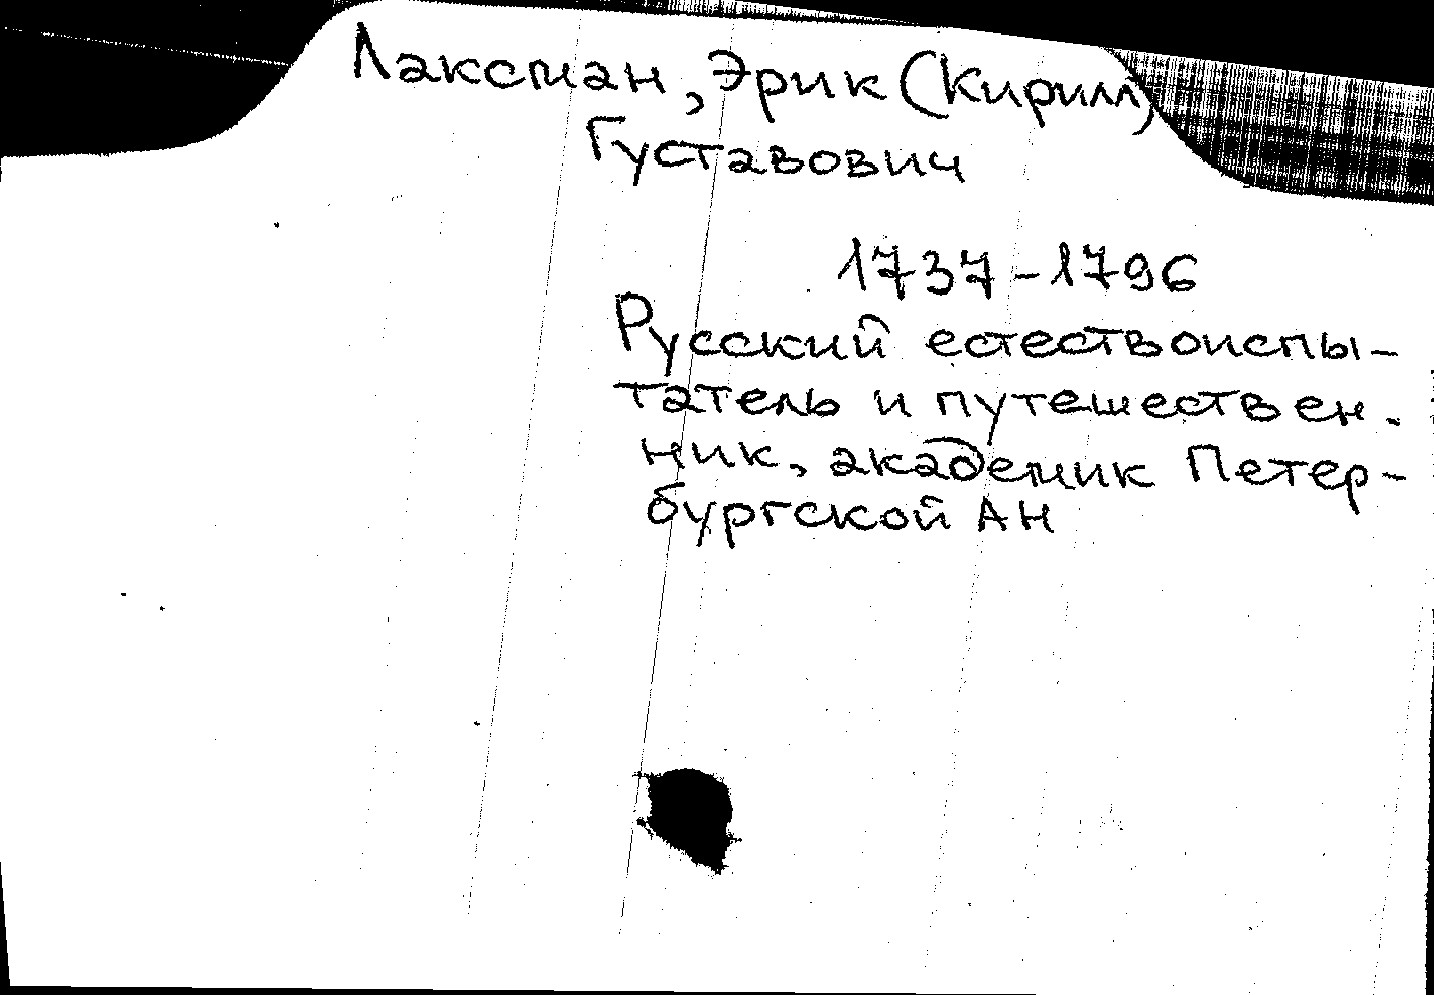 Лаксман, Эрик (Кирилл)
Густавович
1737-1796
Русский естествоиспы-
татель и путешествен-
ник, академик Петер-
бургской АН